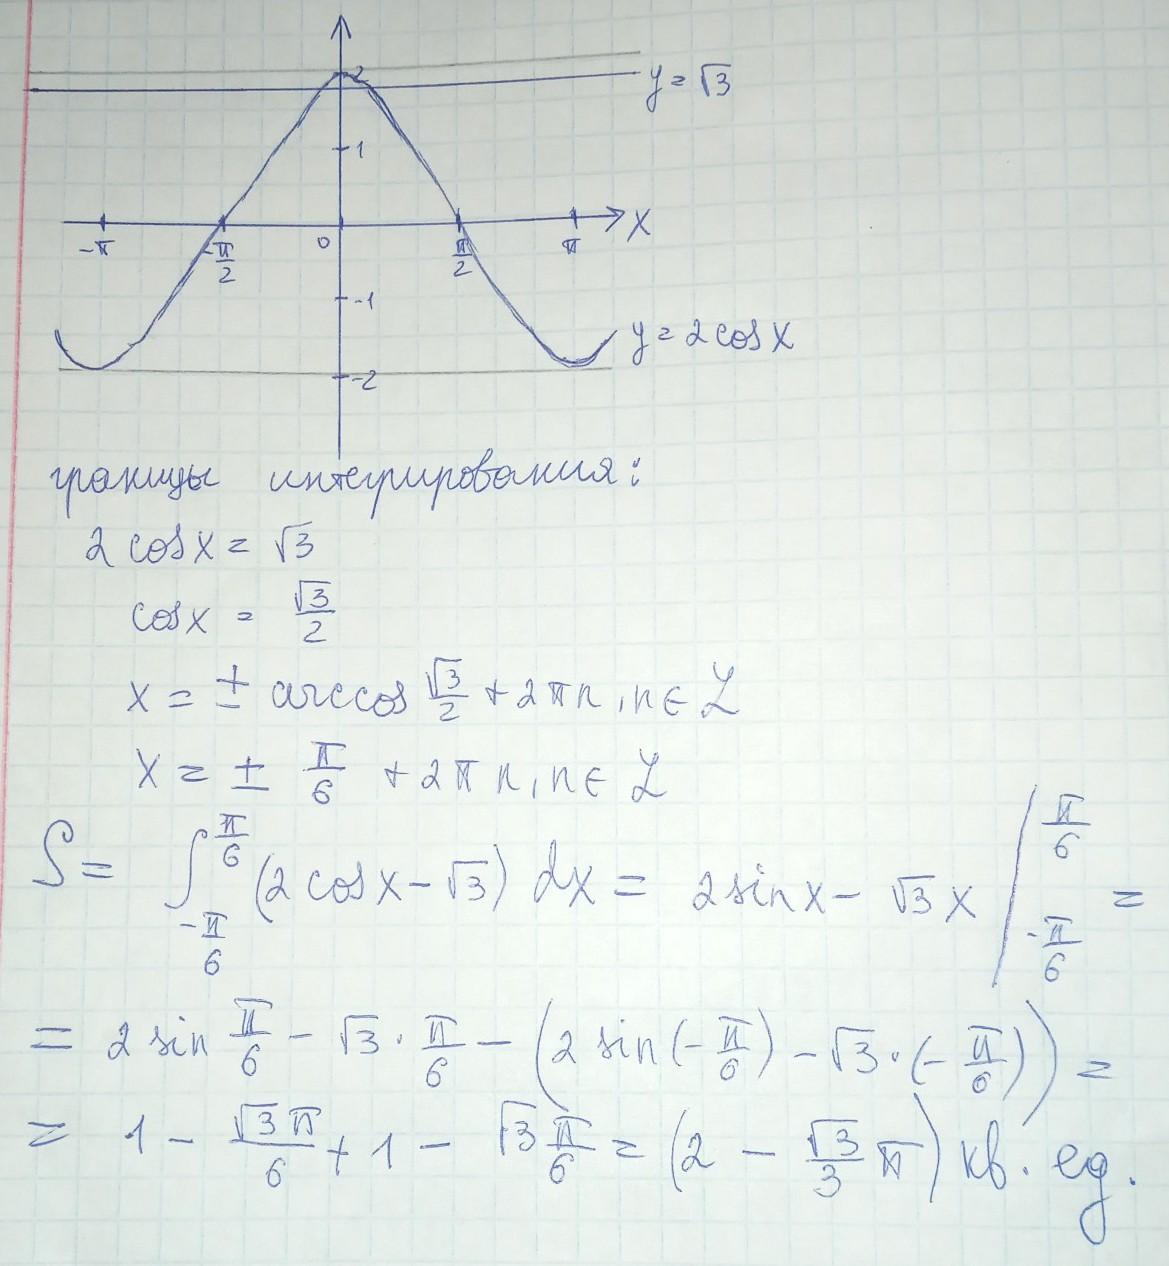 2
y = √3
1
X
-π
-π/2
0
π/2
π
-1
y = 2 cos x
-2
границы интегрирования:
2 cos x = √3
cos x = √3/2
x = ± arccos √3/2 + 2πn, n ∈ Z
x = ± π/6 + 2πn, n ∈ Z
S = ∫_{-π/6}^{π/6} (2 cos x - √3) dx = 2 sin x - √3 x |_{-π/6}^{π/6} =
= 2 sin π/6 - √3 · π/6 - (2 sin (-π/6) - √3 · (-π/6)) =
= 1 - √3π/6 + 1 - √3 π/6 = (2 - √3/3 π) кв. ед.